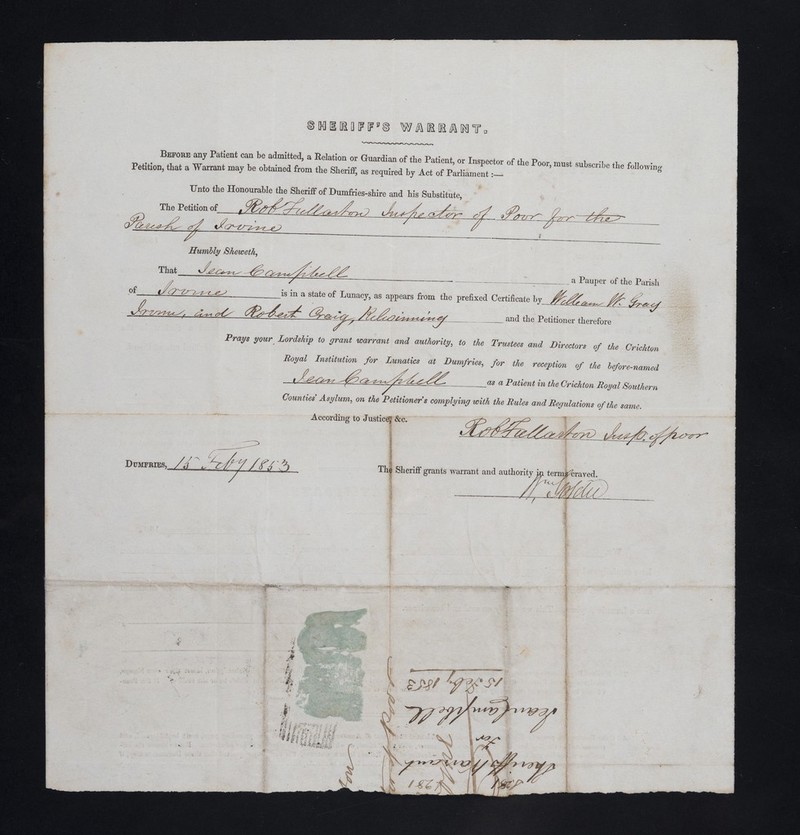 SHERIFF'S WARRANT.
BEFORE any Patient can be admitted, a Relation or Guardian of the Patient, or Inspector of the Poor, must subscribe the following
Petition, that a Warrant may be obtained from the Sheriff, as required by Act of Parliament :—
Unto the Honourable the Sheriff of Dumfries-shire and his Substitute,
The Petition of Rob Fullarton Inspector of Poor for the
Parish of Irvine
Humbly Sheweth,
That Jean Campbell a Pauper of the Parish
of Irvine is in a state of Lunacy, as appears from the prefixed Certificate by William W. Gray
Irvine, and Robert Craig, Kilwinning and the Petitioner therefore
Prays your Lordship to grant warrant and authority, to the Trustees and Directors of the Crichton
Royal Institution for Lunatics at Dumfries, for the reception of the before-named
Jean Campbell as a Patient in the Crichton Royal Southern
Counties' Asylum, on the Petitioner's complying with the Rules and Regulations of the same.
According to Justice, &c.
Rob Fullarton Insp. of poor
DUMFRIES, 15 Feby 1853
The Sheriff grants warrant and authority in terms craved.
Sheriff's Warrant
For
Jean Campbell
15 Feby 1853